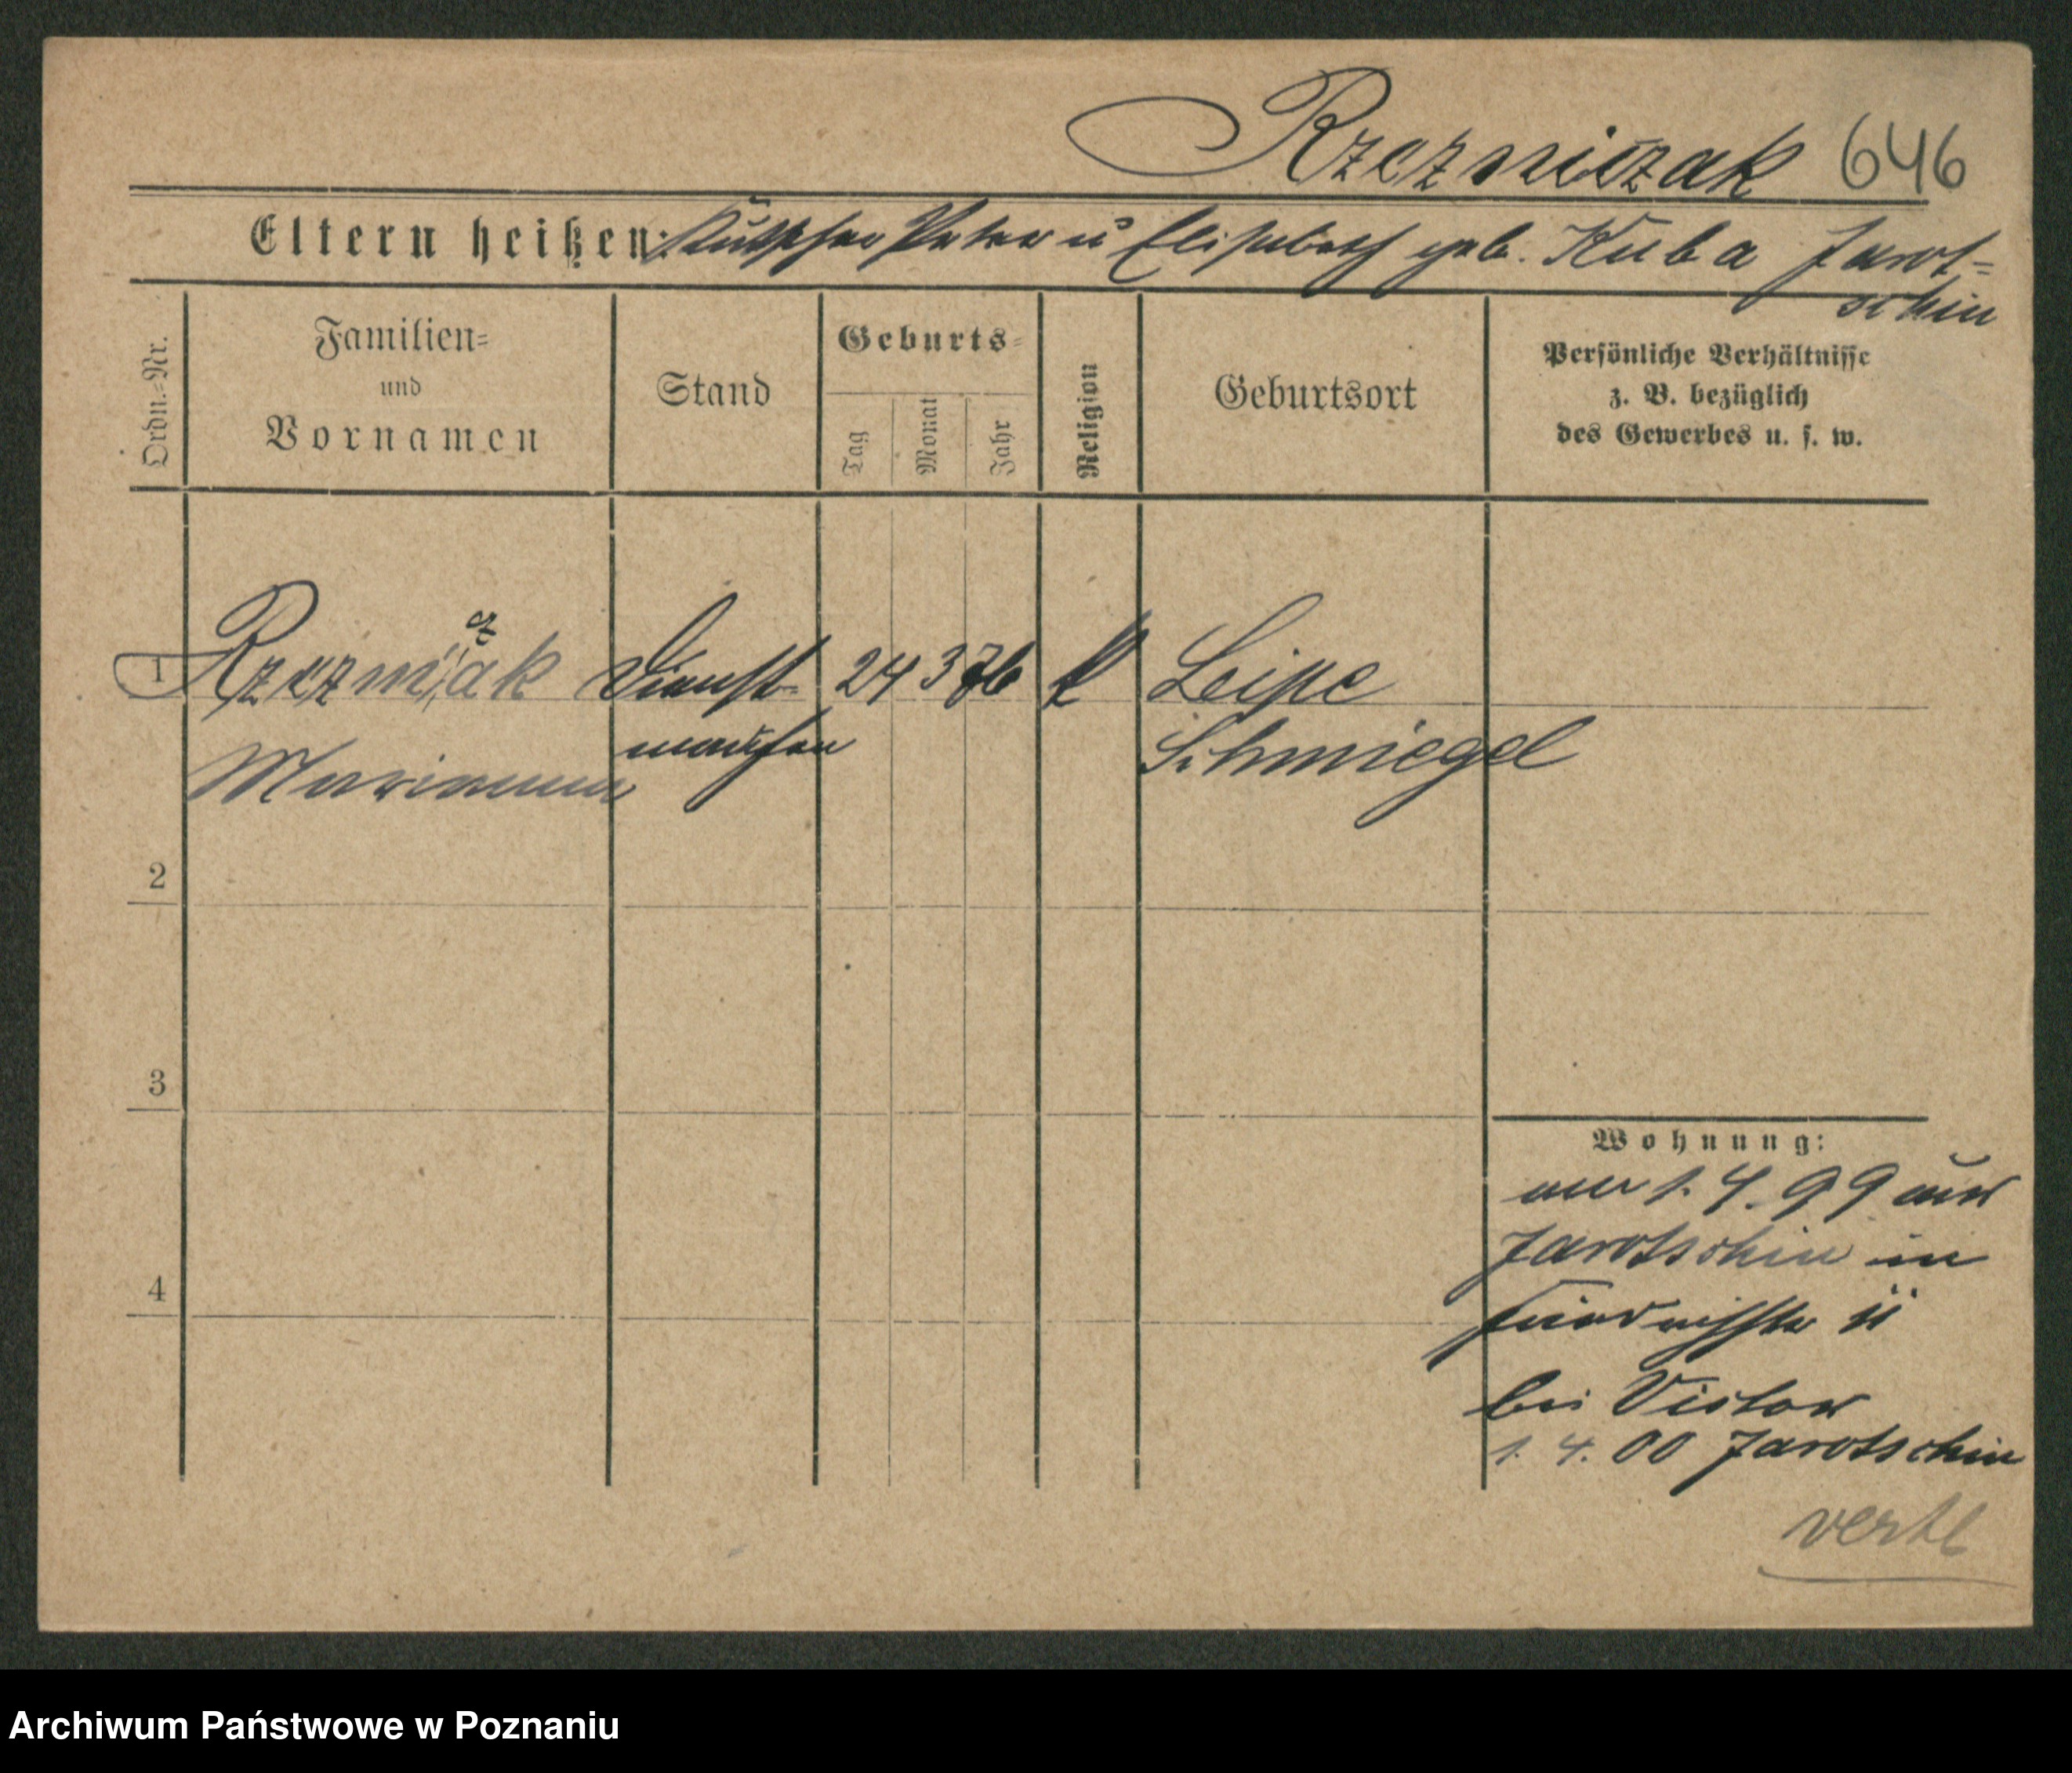 Rzezniczak 646
Eltern heißen: Kutscher Peter u Elisabeth geb. Kuba Jarot=
schin
Ordn.=Nr.
Familien=
und
Vornamen
Stand
Geburts=
Tag
Monat
Jahr
Religion
Geburtsort
Persönliche Verhältnisse
z. B. bezüglich
des Gewerbes u. s. w.
1 Rzezniczak Dienst- 24 3 76 k Leipe
Marianna mädchen Schmiegel
2
3
4
Wohnung:
am 1.4.99 aus
Jarotschin in
bei Victor
1. 4. 00 Jarotschin
Archiwum Państwowe w Poznaniu